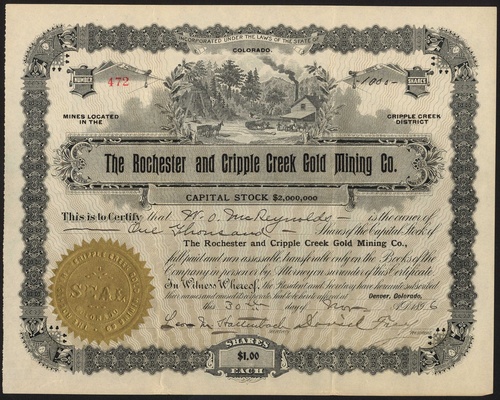 INCORPORATED UNDER THE LAWS OF THE STATE OF
COLORADO.
NUMBER
472
SHARES
1000
MINES LOCATED
IN THE
CRIPPLE CREEK
DISTRICT
The Rochester and Cripple Creek Gold Mining Co.
CAPITAL STOCK $2,000,000
This is to Certify that W. O. McReynolds is the owner of
One Thousand Shares of the Capital Stock of
The Rochester and Cripple Creek Gold Mining Co.,
full paid and non assessable, transferable only on the Books of the
Company in person or by Attorney on surrender of this Certificate.
In Witness Whereof, the President and Secretary have hereunto subscribed
their names and caused the corporate Seal to be hereto affixed at Denver, Colorado,
this 30 day of Nov A.D. 1896
SEAL
SHARES
$1.00
EACH